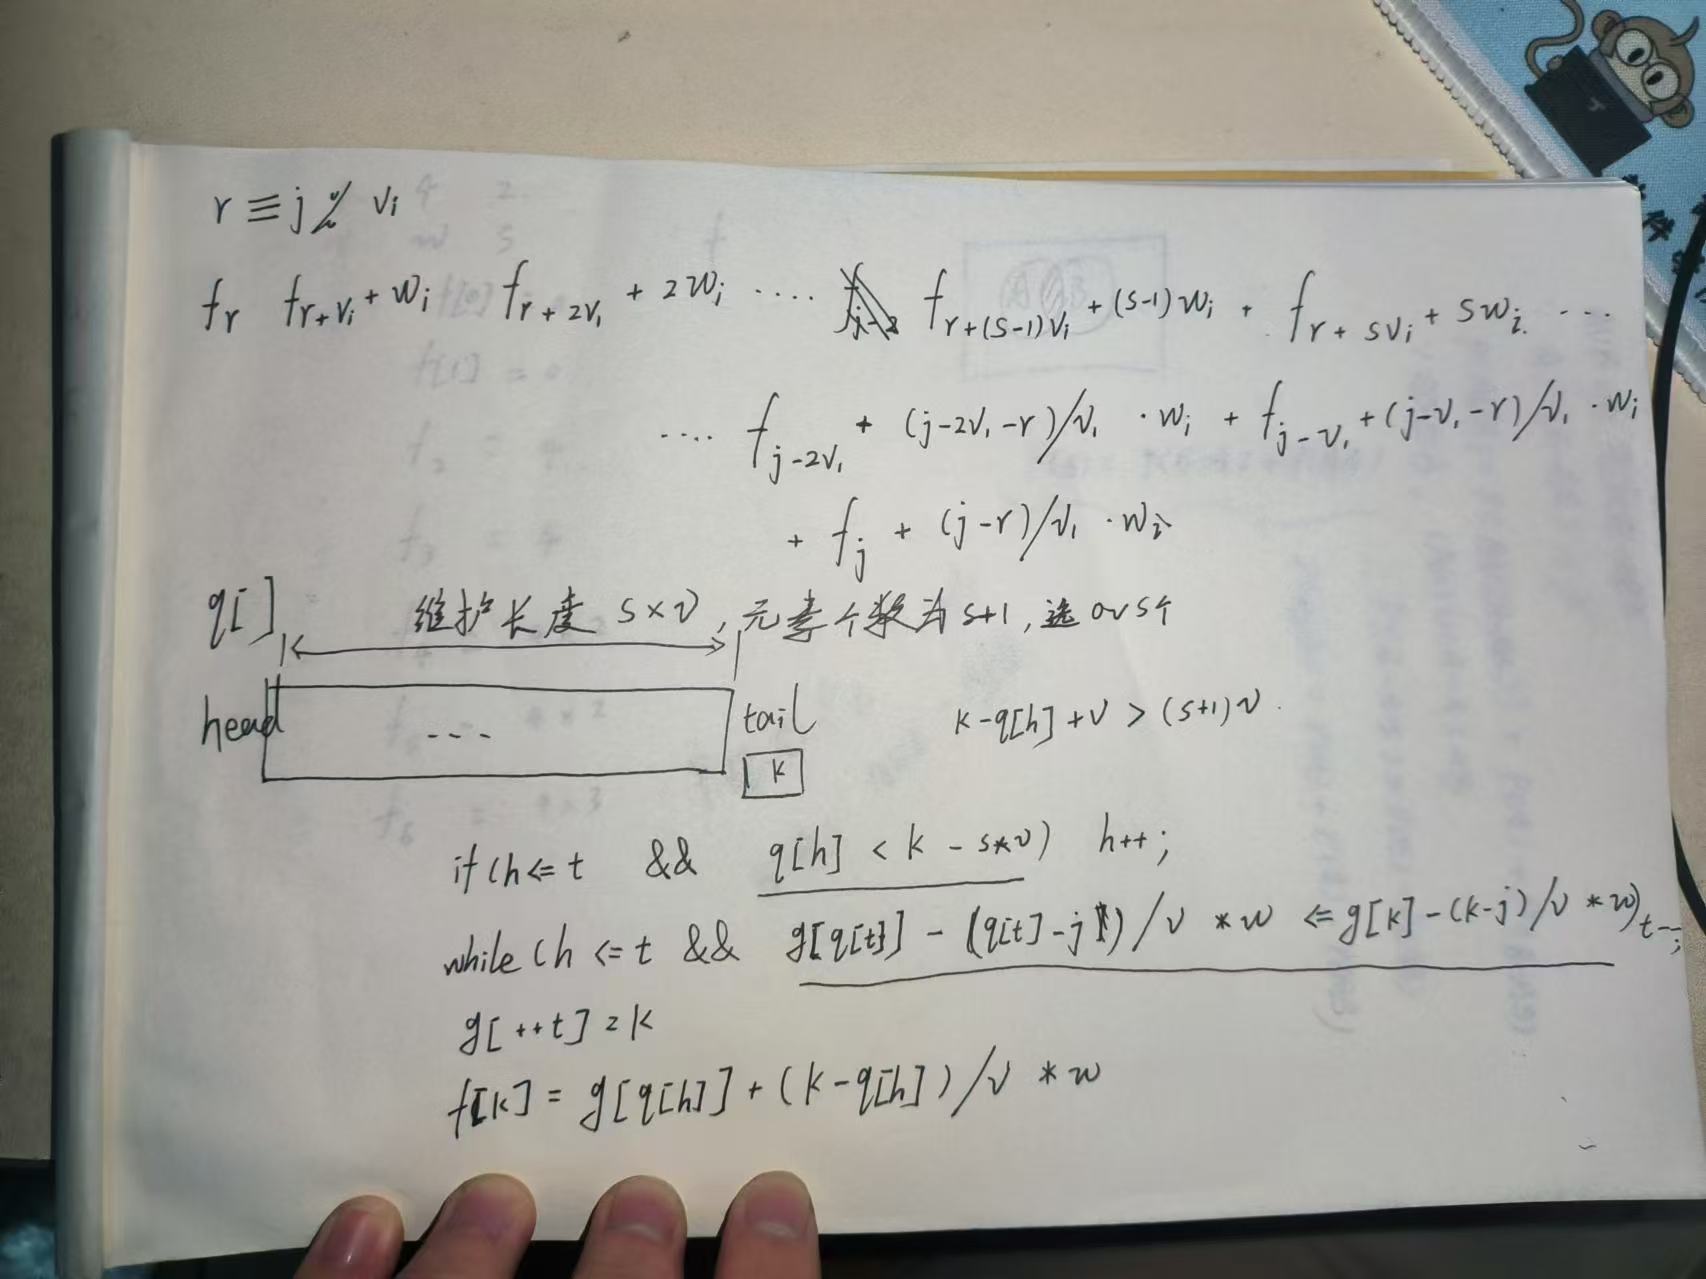 r ≡ j % vᵢ
f_r f_{r+vᵢ} + wᵢ f_{r+2vᵢ} + 2wᵢ .... f_{r+(s-1)vᵢ} + (s-1)wᵢ + f_{r+svᵢ} + swᵢ ...
.... f_{j-2vᵢ} + (j-2vᵢ-r)/vᵢ · wᵢ + f_{j-vᵢ} + (j-vᵢ-r)/vᵢ · wᵢ
+ f_j + (j-r)/vᵢ · wᵢ
q[] 维护长度 s×v, 元素个数为 s+1, 选 0~s个
head ... tail k-q[h]+v > (s+1)v
k
if (h<=t && q[h] < k - s*v) h++;
while (h <= t && g[q[t]] - (q[t]-j)/v *w <= g[k]-(k-j)/v *w) t--;
g[++t] = k
f[k] = g[q[h]] + (k-q[h])/v *w